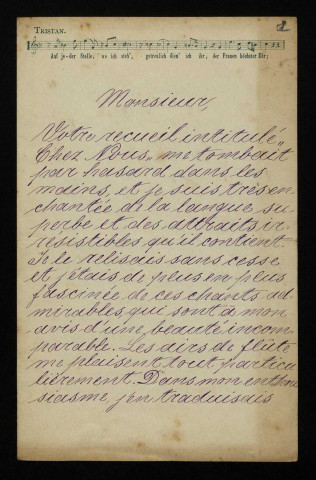 2
TRISTAN.
Auf je-der Stelle, wo ich steh', getreulich dien' ich ihr, der Frauen höchster Ehr;
Monsieur,
Votre recueil intitulé „
Chez Nous„ me tombait
par hasard dans les
mains, et je suis très en
chantée de la langue su
perbe et des attraits ir
résistibles qu'il contient
Je le relisais sans cesse
et j'étais de plus en plus
fascinée de ces chants ad
mirables, qui sont à mon
avis d'une beauté incom
parable. Les airs de flûte
me plaisent tout particu
lièrement. Dans mon enthou
siasme, j'en traduisais